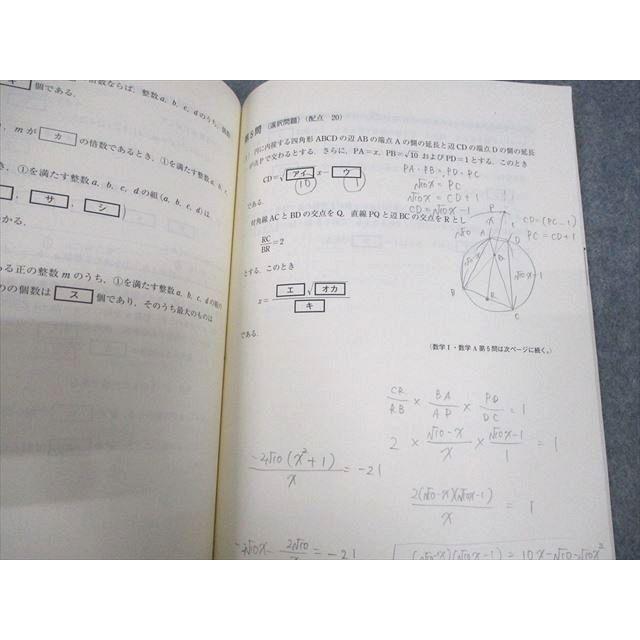 倍数ならば，整数a，b，c，dのうち，個数
キ 個である．
，mが カ の倍数であるとき，①を満たす整数a，b，c，
，①を満たす整数a，b，c，dの組(a，b，c，d)は
， サ ， シ )
かる．
ある正の整数mのうち，①を満たす整数a，b，c，dの組の
個数は ス 個であり，そのうち最大のものは
第5問 (選択問題) (配点 20)
円に内接する四角形ABCDの辺ABの端点Aの側の延長と辺CDの端点Dの側の延長
が点Pで交わるとする．さらに，PA=x，PB=√10 およびPD=1とする．このとき
CD=√アイ x－ウ
10 1
である．
PA・PB=PD・PC
√10x = PC
√10x = CD+1
CD = √10x－1
対角線ACとBDの交点をQ，直線PQと辺BCの交点をRとし
RC/BR=2
とする．このとき
x= エ √オカ / キ
である．
P
CD=(PC－1)
PC=CD+1
√10
x
1
A
D
Q
√10-x
√10x-1
B
R
C
(数学Ⅰ・数学A第5問は次ページに続く。)
CR/RB × BA/AP × PD/DC = 1
2 × √10-x/x × √10x-1/1 = 1
-2√10(x²+1)/x = -21
2(√10-x)(√10x-1)/x = 1
-2√10x- 2√10/x = -21
(√10-x)(√10x-1) = 10x-√10-√10x²